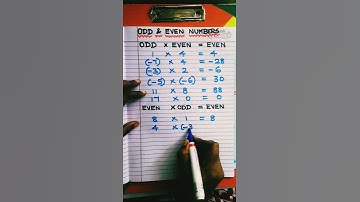 ODD & EVEN NUMBERS
ODD × EVEN = EVEN
1 × 4 = 4
(-7) × 4 = -28
(-3) × 2 = -6
(-5) × (-6) = 30
11 × 8 = 88
17 × 0 = 0
EVEN × ODD = EVEN
8 × 1 = 8
4 × (-3